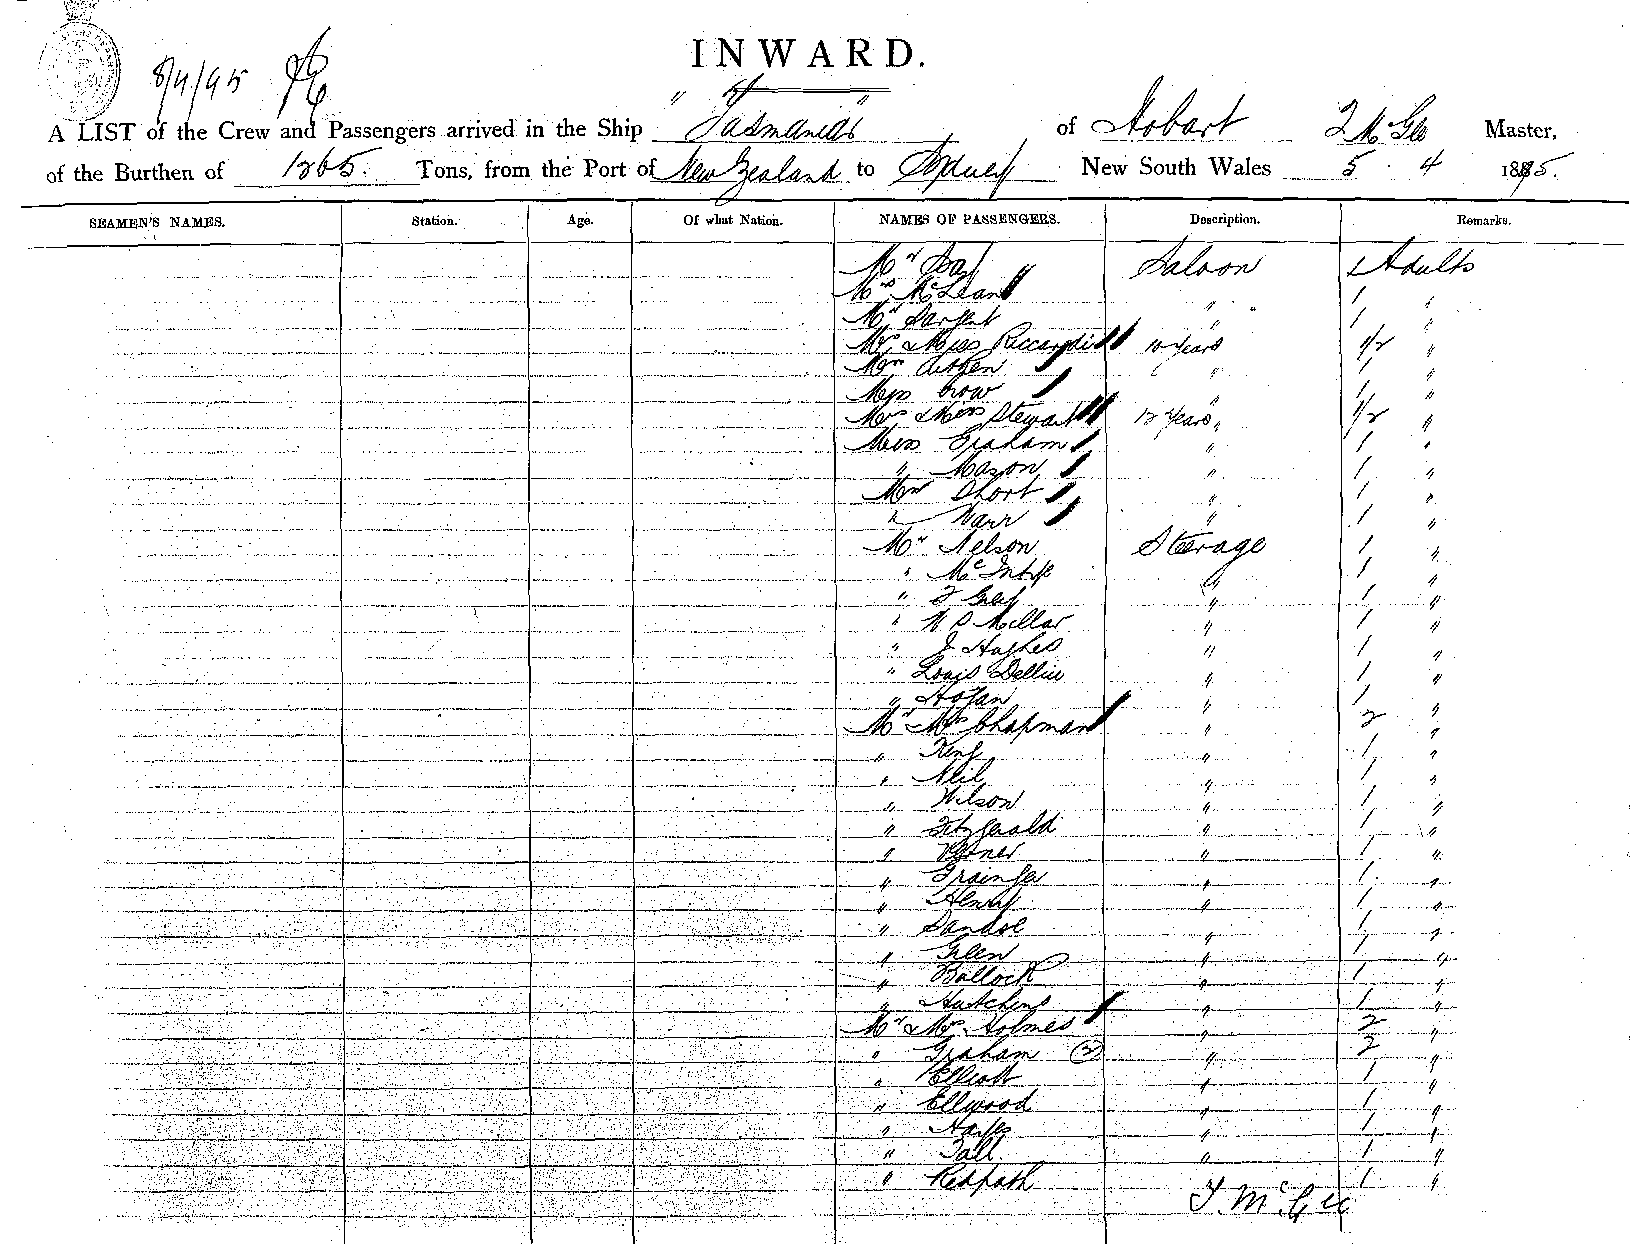 8/4/95
INWARD.
A LIST of the Crew and Passengers arrived in the Ship "Tasmania" of Hobart T McGee Master,
of the Burthen of 1265. Tons, from the Port of New Zealand to Sydney New South Wales 5 . 4 1895.
SEAMEN'S NAMES. Station. Age. Of what Nation. NAMES OF PASSENGERS. Description. Remarks.
Mr Saloon 1 Adults
Mrs McLean " " 1 "
Mr Sargent " 1 "
Mrs & Miss Riccardi 10 years 1/2 "
Mrs Aitken " 1 "
Miss Crow " 1 "
Mrs & Miss Stewart 12 years " 1/2 "
Miss Graham " 1 "
" Mason " 1 "
Mr Short " 1 "
" " 1 "
Mr Nelson Sterage 1 "
" McIntyre " 1 "
" " 1 "
" W S Millar " 1 "
" J Hughes " 1 "
" Louis " 1 "
" Hogan " 1 "
Mr Mrs Chapman " 2 "
" King " 1 "
" Neil " 1 "
" Wilson " 1 "
" Fitzgerald " 1 "
" " 1 "
" Grainger " 1 "
" Henry " 1 "
" " 1 "
" Glen " 1 "
" Bollock " 1 "
" Hutchins " 1 "
Mr & Mrs Holmes " 2 "
" Graham (2) " 2 "
" Elliott " 1 "
" Ellwood " 1 "
" Hayes " 1 "
" Tall " 1 "
" Redpath " 1 "
T. McGee